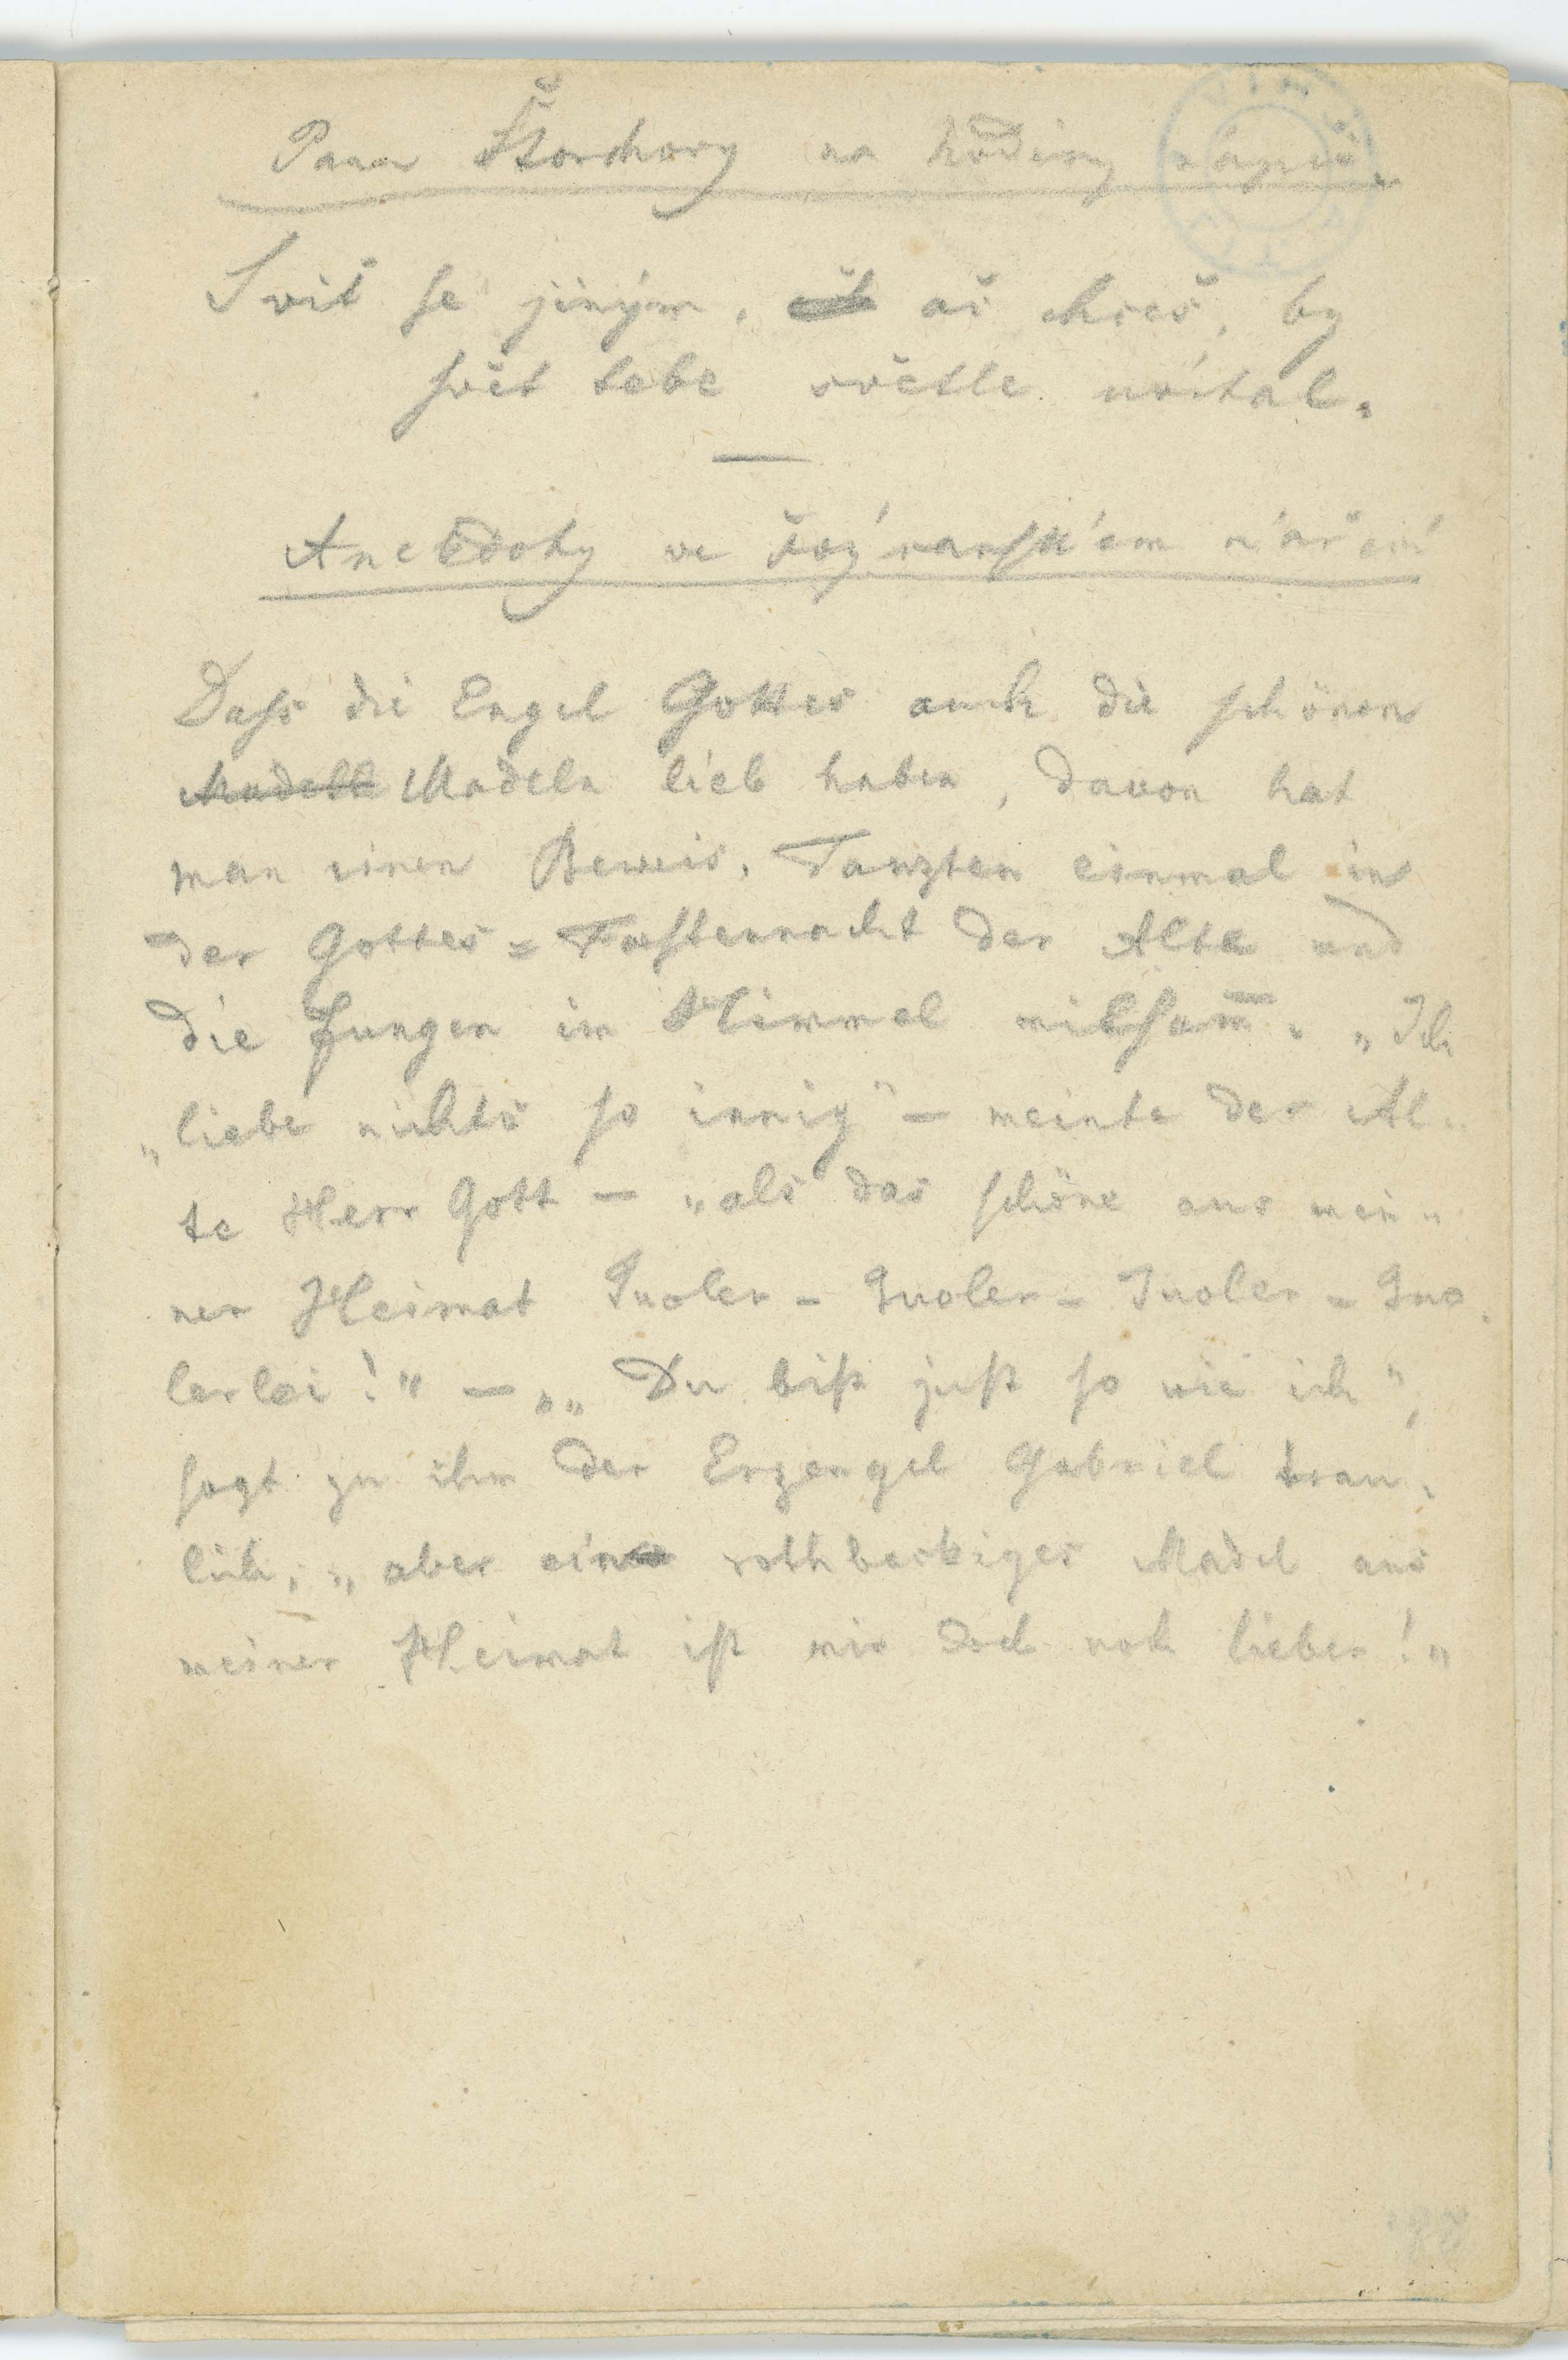 Pana Štorchovy na hodiny nápis.
Sviť se jiným, ač chceš, by
svět tebe světle uvítal.
Anekdoty ve švýcarském nářečí
Dass die Engel Gottes auch die schönen
Madeln lieb haben, davon hat
man einen Beweis. Tanzten einmal in
der Gottes=Fastennacht der Alte und
die Jungen im Himmel mitsam̅. „Ich
„liebe nichts so innig" – meinte der Al„
te Herr Gott – „als das schöne aus mei„
ner Heimat
lerlei!" – „„Du bist just so wie ich",
sagt zu ihm der Erzengel Gabriel trau„
lich, „aber ein rothbackiges Madel aus
meiner Heimat ist mir doch noch lieber!"